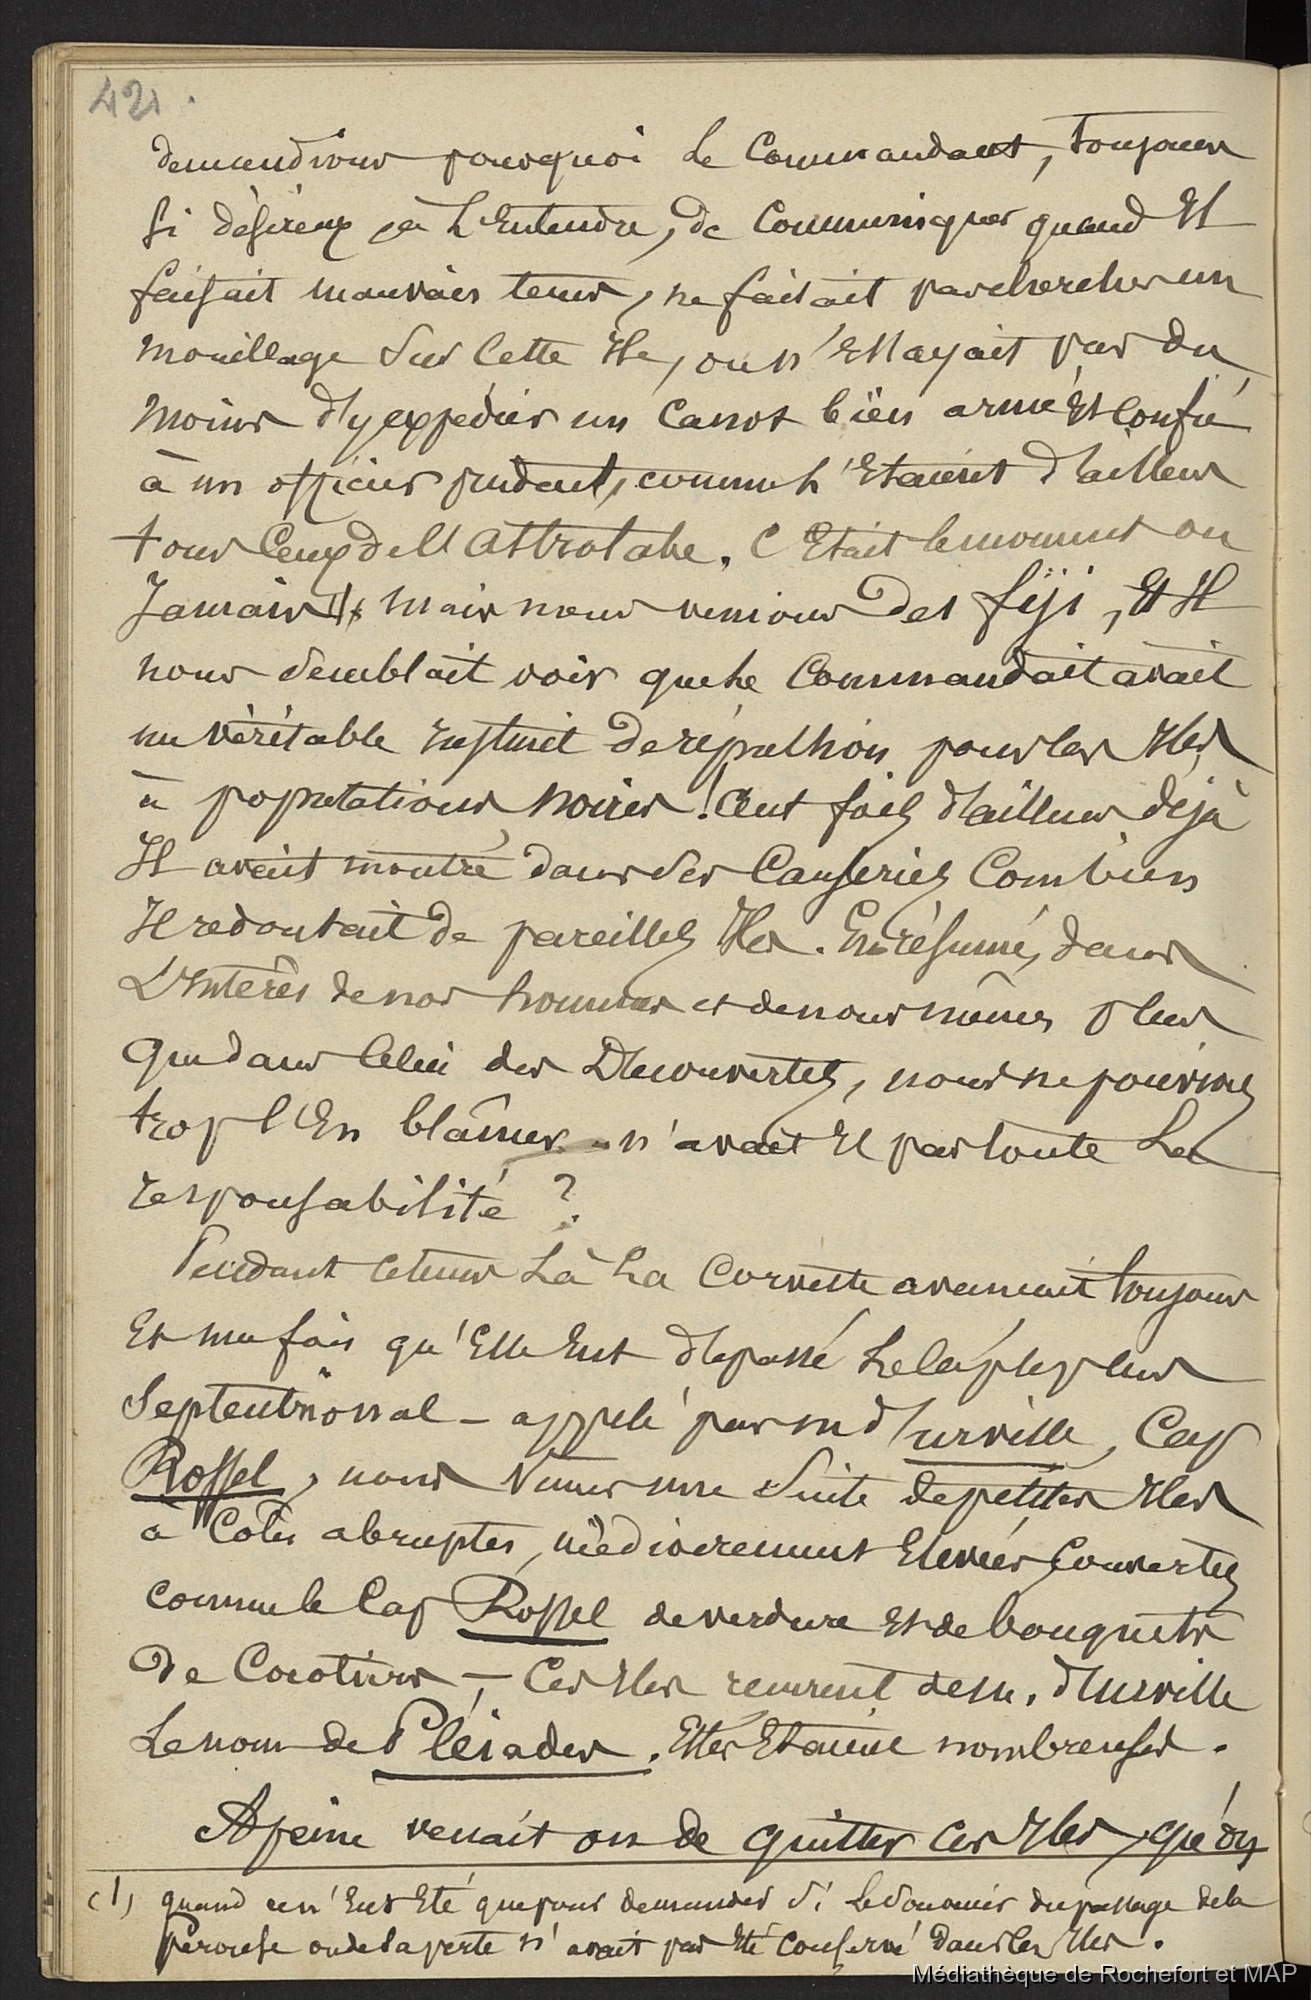 421.
demandions pourquoi Le Commandant, toujours
si désireux, à L'Entendre, de Communiquer quand Il
faisait mauvais tems, ne faisait pas chercher un
mouillage sur Cette Ile, ou n'Essayait pas du
moins d'y expédier un Canot bien armé Et Confié
à un officier prudent, comme L'Etaient d'ailleurs
tous Ceux de l'Astrolabe. C'Etait le moment ou
Jamais (1). mais nous venions des fiji, Et Il
nous semblait voir que Le Commandait avait
un véritable Instinct de répulsion pour les Iles
à populations noires! Cent fois d'ailleurs déjà
Il avait montré dans ses Causeries Combien
Il redoutait de pareilles Iles. En résumé, dans
L'Intérês de nos hommes et de nous mêmes plus
que dans Celui des Découvertes, nous ne pouvions
trop l'En blâmer. n'avait Il pas toute La
responsabilité ?
Pendant ce tems Là La Corvette avancait toujours
Et une fois qu'Elle Eut dépassé Le Cap le plus
Septentrional – appelé par m d'urville, Cap
Rossel, nous vimes une Suite de petites Iles
à Côtes abruptes, médiocrement Elevées, Couvertes
comme le Cap Rossel de verdure Et de bouquets
de Cocotiers – Ces Iles recurent de m. d'Urville
Le nom de Pléiades. Elles Etaient nombreuses.
A peine venait on de quitter Ces Iles, qu'on
(1) quand ce n'Eut Eté que pour demander si Le souvenir du passage de la
Perouse ou de la perte n'avait pas Eté Conservé dans les Iles.
Médiathèque de Rochefort et MAP